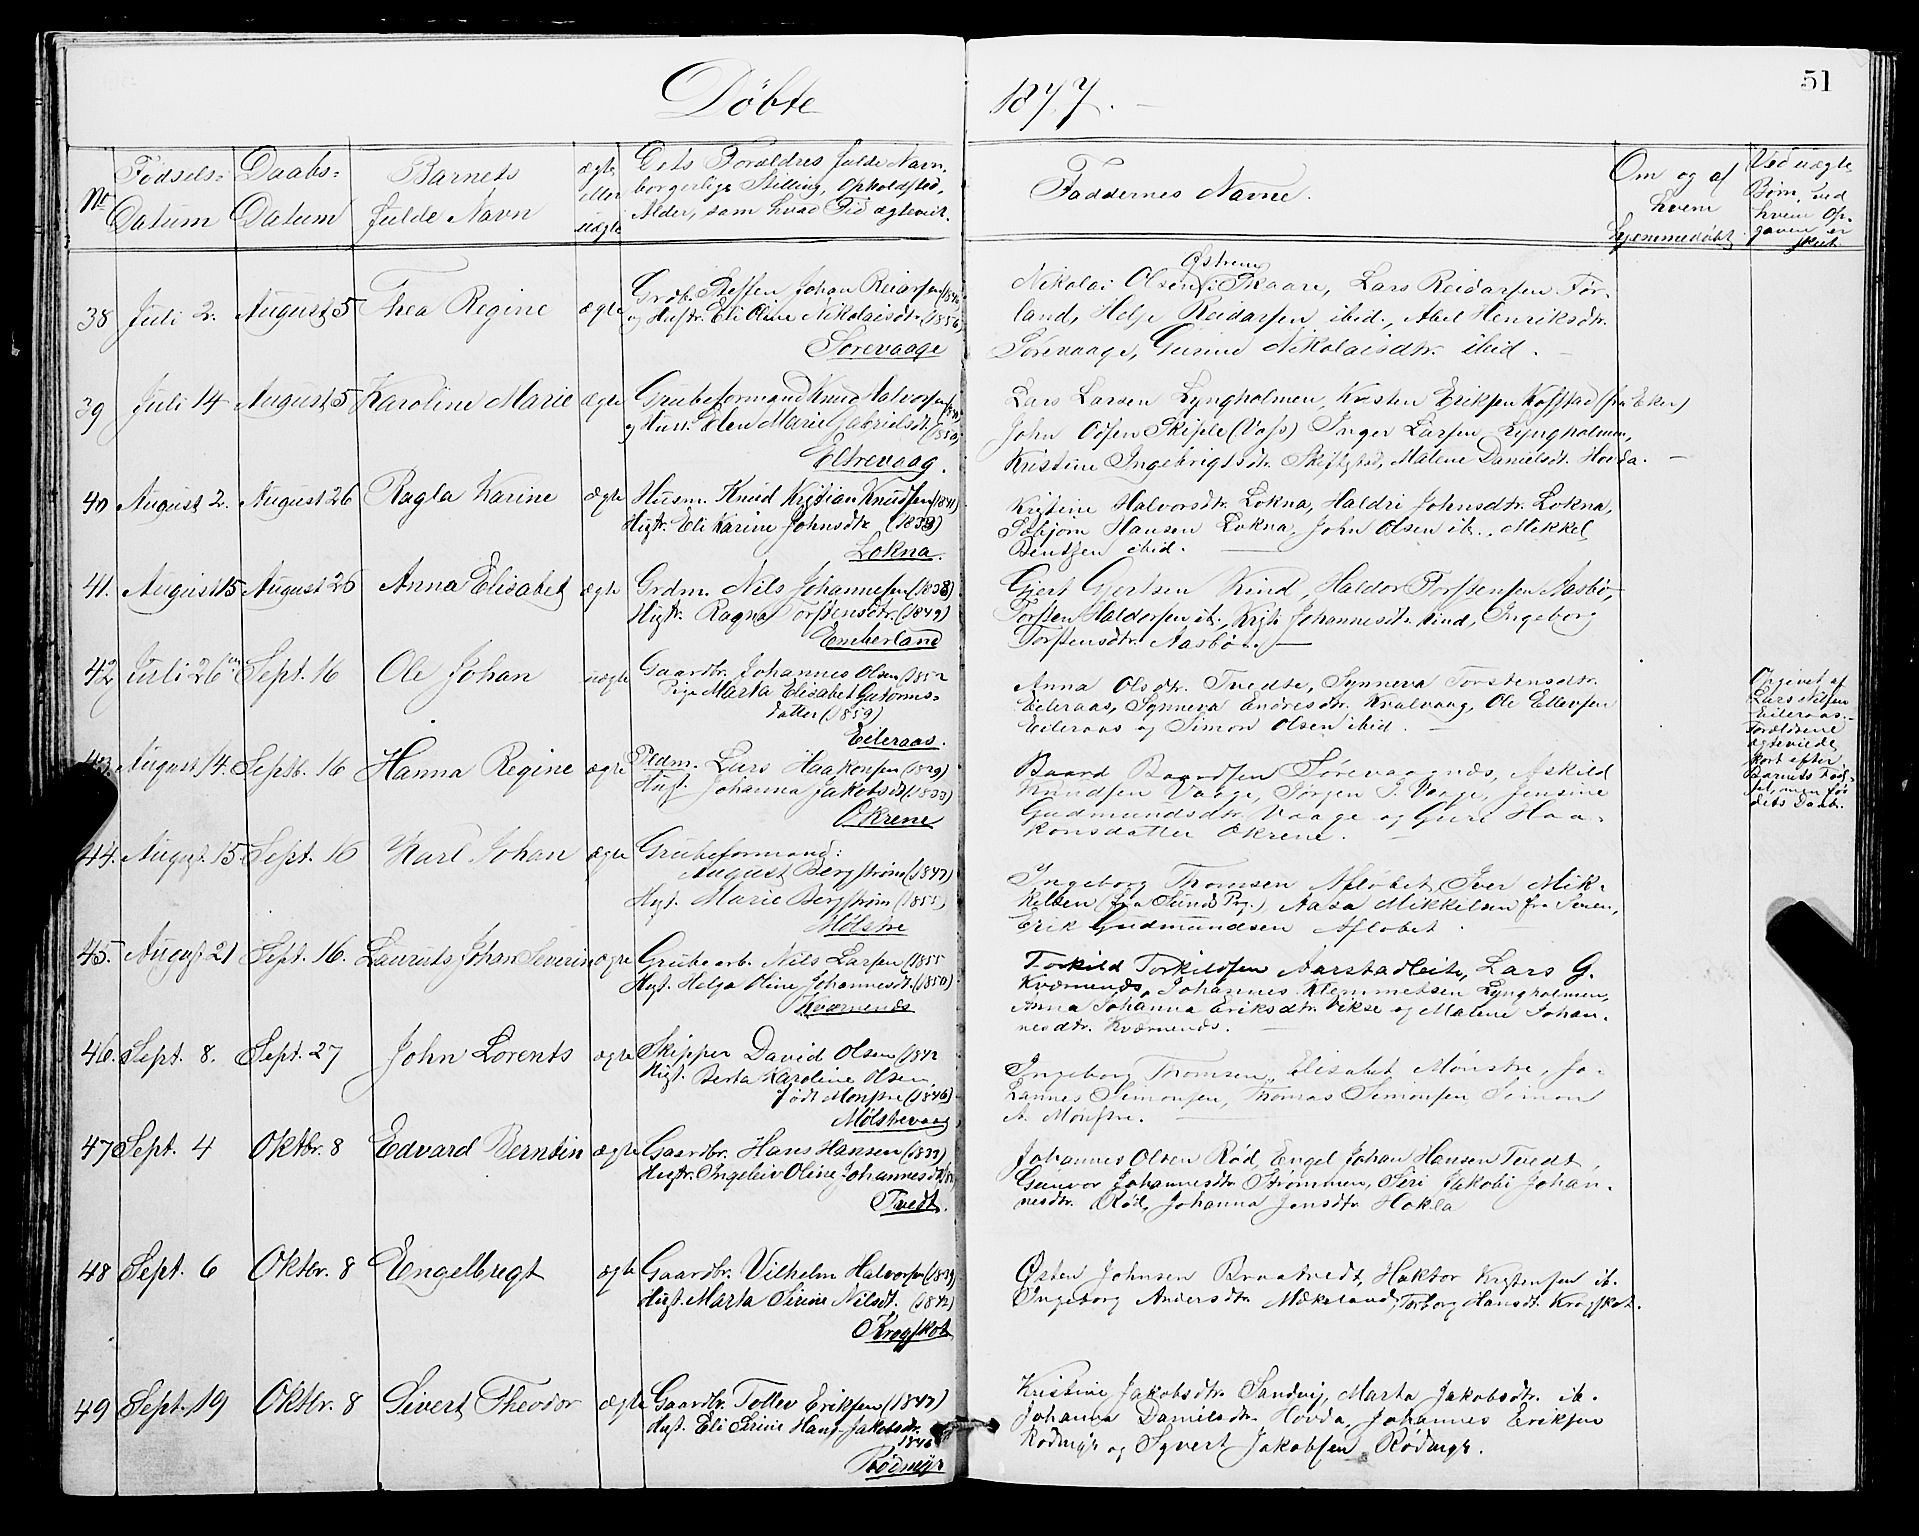 51
Döbte 1877.
No
Födsels-
Datum
Daabs-
Datum
Barnets
fulde Navn
ægte
eller
uægte
Dets Forældres fulde Navn,
borgerlige Stilling, Opholdsted,
Alder, samt hvad Tid ægteviet.
Faddernes Navne.
Om og af
hvem
hjemmedöbt
Ved uægte
Børn, ved
hvem Op-
gaven er
skeet
38 Juli 2. August 5 Thea Regine ægte
Grdb. Steffen Johan Reiarsen
og Hustr. Eli Oline Nikolaisdtr. (1856)
Sørevaage
Østrem
Nikolai Olsen Skaare, Lars Reidarsen Før-
land, Helje Reidarsen ibid., Abel Henriksdtr.
Sørevaage, Gunne Nikolaisdtr. ibid.
39 Juli 14 August 5 Karoline Marie ægte
Grubeformand Knud Halvorsen
og Hust. Elen Marie Gabrielsdt. (1850)
Eltrevaag.
Lars Larsen Lyngholmen, Kristen Eriksen Kofstad (fra Eker)
John Odsen Skiple (Voss) Inger Larsen Lyngholmen,
Kristine Ingebrigtsdtr. Malene Danielsdt. Hovda.
40 August 2. August 26 Ragla Karine ægte
Husm. Knud Kristian Knudsen (1841)
Hustr. Eli Karine Johnsdtr. (1833)
Lokna.
Kristine Halvorsdtr. Lokna, Haldri Johnsdtr. Lokna,
Hansen Lokna, John Olsen ib., Mikkel
Bentsen ibid.
41. August 15 August 26 Anna Elisabet ægte
Grdm. Nils Johannesen (1838)
Hustr. Ragna Torstensdtr. (1849)
Emberland
Gjert Gjertsen Rind, Haldor Torstensen Aasbø,
Torsten Haldorsen ib., Johannesdt. Rind, Ingeborg
Torstensdtr. Aasbø.
42 Juli 26 Sept. 16 Ole Johan uægte
Gaardbr. Johannes Olsen 1852
Pige Marta Elisabet Gutorms-
datter (1859)
Eileraas.
Anna Olsdtr. Tvedte, Synneva Torstensdtr.
Eileraas, Synneva Endresdtr. Kvalvaag, Ole Ellevsen
Eileraas og Simon Olsen ibid.
Opgivet af
Lars Nilsen
Eileraas.
Forældrene
ægteviede
kort efter
Barnets Föd-
sel, men før
dets Daab.
43. August 14. Sept. 16 Hanna Regine ægte
Pldm. Lars Haakonsen (1829)
Hust. Johanna Jakobsdt. (1833)
Økrene
Baard Baardsen Sørevaagnæs, Askild
Knudsen Vaage, Jørgen J. Vaage, Jensine
Gudmundsdtr. Vaage og Guri Haa-
konsdatter Økrene.
44. August 15 Sept. 16 Karl Johan ægte
Grubeformand:
August Bergström (1847)
Hust. Marie Bergström (1855)
Mølstre
Ingeborg Thomsen Afløbet, Iver Mik-
kelsen (fra Sunds Pr.), Aasa Mikkelsen fra
Erik Gudmundsen Afløbet.
45. August 21 Sept. 16. Laurits Johan Severin ægte
Grubearb. Nils Larsen (1855
Hust. Helga Oline Johannesdt. (1850)
Kværnenæs
Torkild Torkildsen Aarstadleite, Lars G.
Kværnenæs, Johannes Klemmetsen Lyngholmen,
Anna Johanna Eriksdtr. Vikse og Malene Johan-
nesdtr. Kværnenæs.
46. Sept. 8. Sept. 27 John Lorents ægte
Skipper David Olsen (1842
Hust. Berta Karoline Olsen,
født Monstre (1846)
Mølstrevaag
Ingeborg Thomsen, Elisabet Monstre, Jo-
hannes Simonsen, Thomas Simonsen, Simon
A. Monstre.
47 Sept. 4 Oktbr. 8 Edvard Berntin ægte
Gaardbr. Hans Hansen (1833)
Hustr. Ingeleiv Oline Johannesdt.
Tvedt.
Johannes Olsen Rød, Engel Johan Hansen Tvedt,
Gunvor Johannesdtr. Strømmen, Siri Jakobi Johan-
nesdtr. Rød, Johanna Jensdtr. Hokla
48 Sept. 6 Oktbr. 8 Engelbregt ægte
Gaardbr. Vilhelm Halvorsen (1839)
Hust. Marta Sirine Nilsdt. (1842)
Krogskot
Østen Johnsen Braatvedt, Haktor Kristensen ib.
Ingeborg Andersdtr. Mækeland, Torborg Hansdt. Krogskot.
49 Sept. 19 Oktbr. 8 Sivert Theodor ægte
Gaardbr. Tollev Eriksen (1842)
Hust. Eli Sirine Hans Jakobsdtr.
1846
Rødmyr
Kristine Jakobsdtr. Sandvig, Marta Jakobsdtr. ib.
Johanna Danielsdtr. Hovda, Johannes Eriksen
Rødmyr og Syvert Jakobsen Rødmyr.